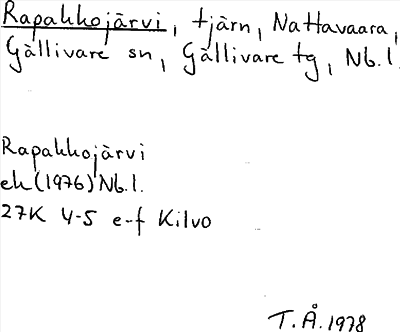 Rapakkojärvi, tjärn, Nattavaara,
Gällivare sn, Gällivare tg, Nb.l.
Rapakkojärvi
ek(1976)Nb.l.
27K 4-5 e-f Kilvo
T.Å.1978